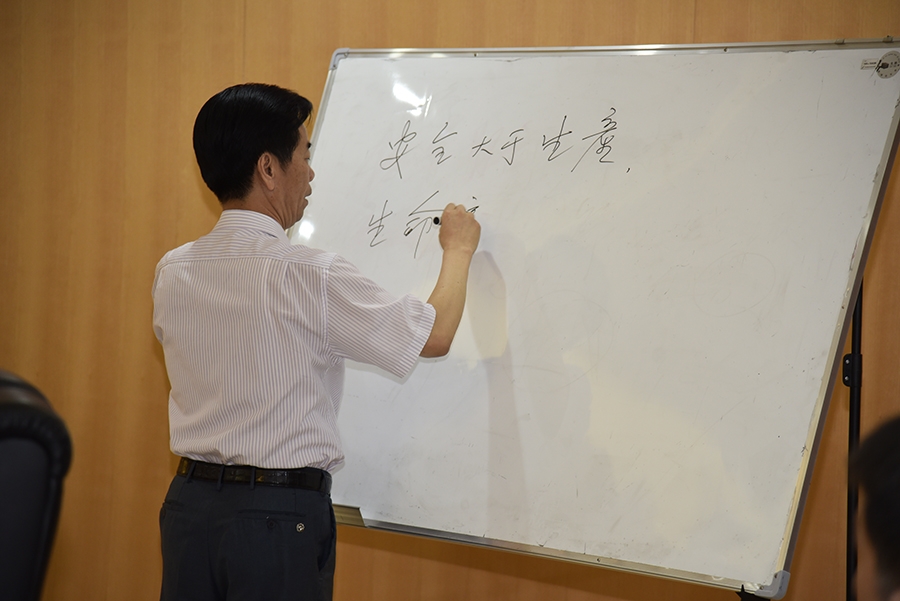 安全大于生产,
生命